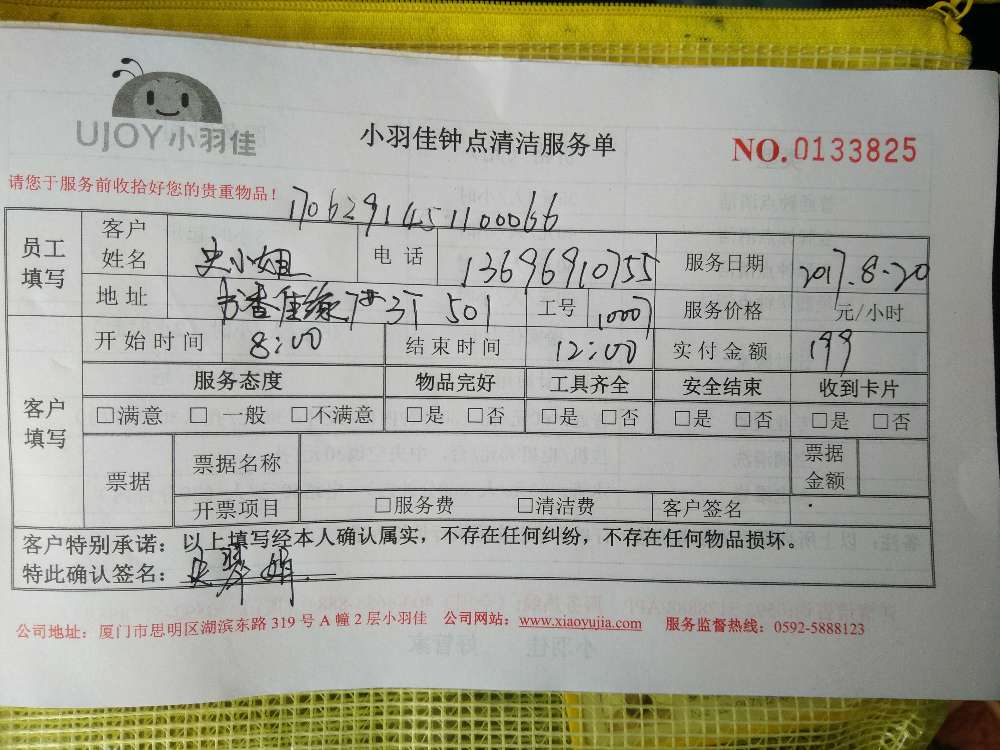 UJOY小羽佳
小羽佳钟点清洁服务单
NO.0133825
请您于服务前收拾好您的贵重物品！
1706291451100066
员工填写 客户姓名 史小姐 电话 13696910755 服务日期 2017.8.20
地址 书香佳缘 501 工号 10007 服务价格 元/小时
客户填写 开始时间 8:00 结束时间 12:00 实付金额 199
服务态度 物品完好 工具齐全 安全结束 收到卡片
□满意 □一般 □不满意 □是 □否 □是 □否 □是 □否 □是 □否
票据 票据名称 票据金额
开票项目 □服务费 □清洁费 客户签名
客户特别承诺：以上填写经本人确认属实，不存在任何纠纷，不存在任何物品损坏。
特此确认签名：史翠娟
公司地址：厦门市思明区湖滨东路 319 号 A 幢 2 层小羽佳 公司网站：www.xiaoyujia.com 服务监督热线：0592-5888123